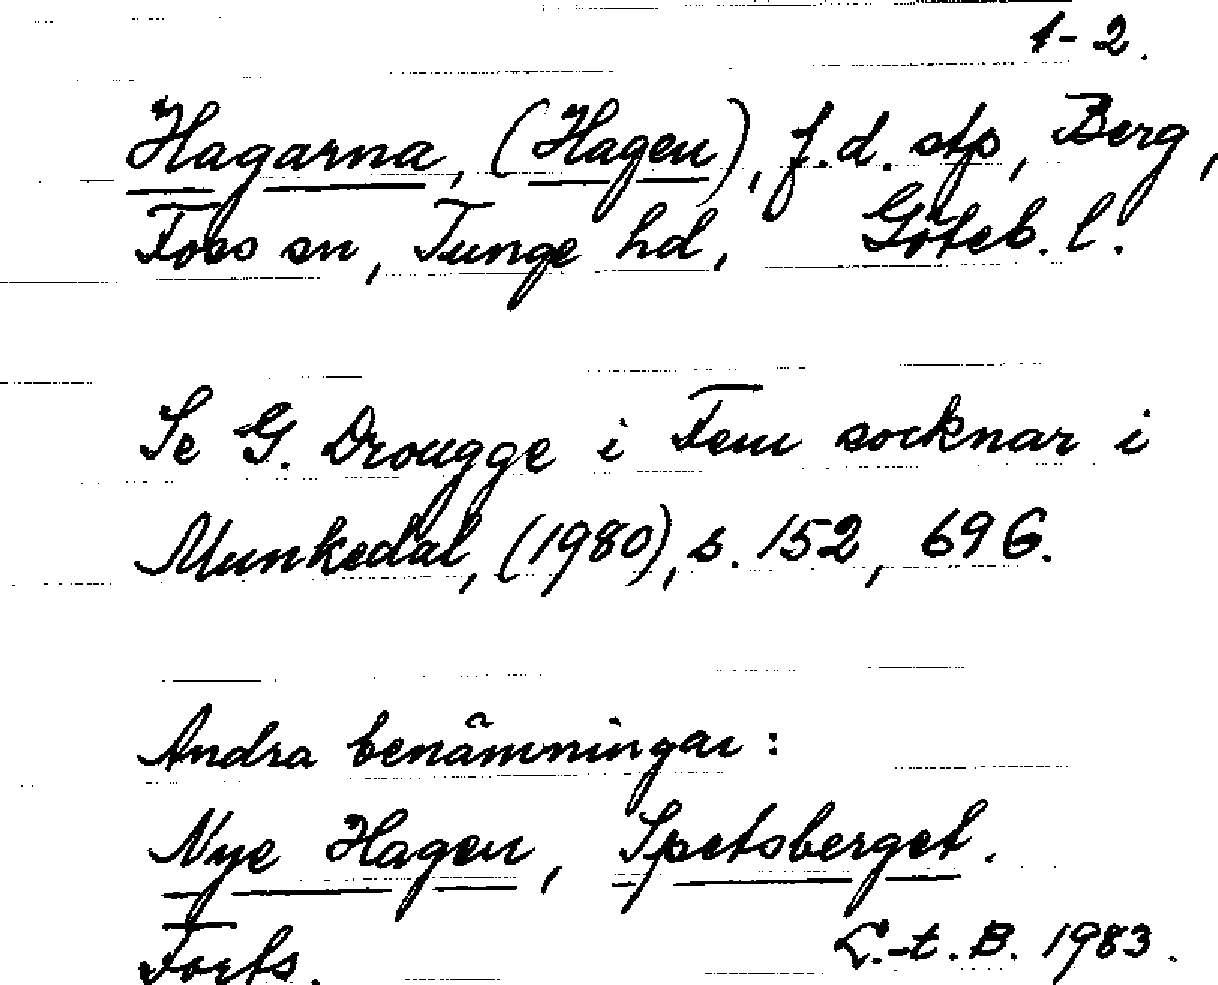 1-2.
Hagarna, (Hagen), f.d. stp, Berg,
Foss sn, Tunge hd, Göteb. l.
Se G. Drougge i Fem socknar i
Munkedal, (1980), s. 152, 696.
Andra benämningar:
Nye Hagen, Spetsberget.
Forts. L.-t. B. 1983.